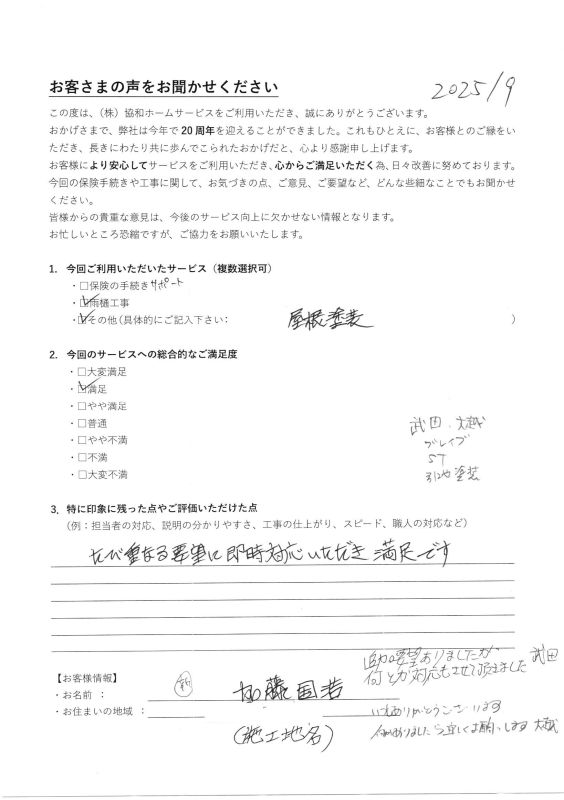 お客さまの声をお聞かせください
2025/9
この度は、（株）協和ホームサービスをご利用いただき、誠にありがとうございます。
おかげさまで、弊社は今年で20周年を迎えることができました。これもひとえに、お客様とのご縁をい
ただき、長きにわたり共に歩んでこられたおかげだと、心より感謝申し上げます。
お客様により安心してサービスをご利用いただき、心からご満足いただく為、日々改善に努めております。
今回の保険手続きや工事に関して、お気づきの点、ご意見、ご要望など、どんな些細なことでもお聞かせ
ください。
皆様からの貴重な意見は、今後のサービス向上に欠かせない情報となります。
お忙しいところ恐縮ですが、ご協力をお願いいたします。
1. 今回ご利用いただいたサービス（複数選択可）
・□保険の手続きサポート
・☑雨樋工事
・☑その他(具体的にご記入下さい: 屋根塗装 )
2. 今回のサービスへの総合的なご満足度
・□大変満足
・☑満足
・□やや満足
・□普通
・□やや不満
・□不満
・□大変不満
武田、大越
ブレイブ
ST
塗装
3. 特に印象に残った点やご評価いただけた点
（例：担当者の対応、説明の分かりやすさ、工事の仕上がり、スピード、職人の対応など）
たび重なる要望に即時対応いただき 満足です
追加要望ありましたが
何とか対応もさせて頂きました 武田
【お客様情報】
・お名前 ： 加藤国若
・お住まいの地域 ：
(施工地名)
いつもありがとうございます
何かありましたら宜しくお願いします 大越